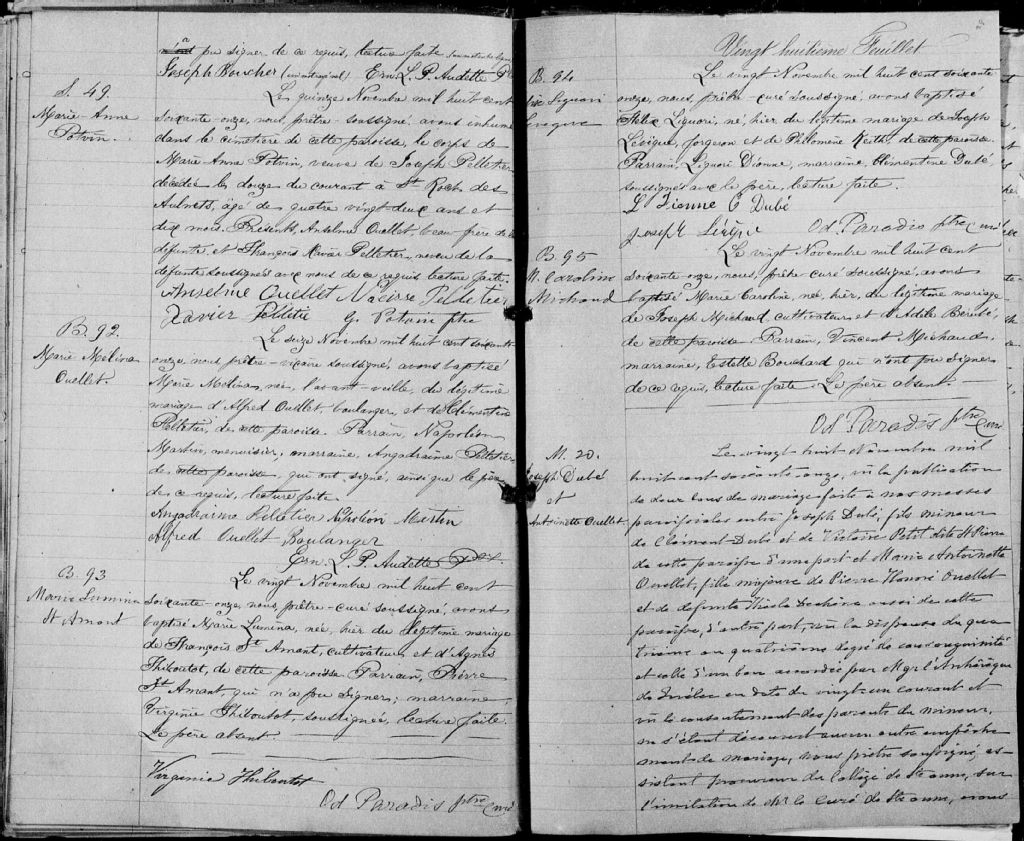 pu signer de ce requis, lecture faite
Joseph Boucher Ern. L. P. Audette Ptre
S. 49.
Marie-Anne
Potvin.
Le quinze Novembre mil huit cent
soixante-onze, nous, prêtre-soussigné, avons inhumé
dans le cimetière de cette paroisse, le corps de
Marie Anne Potvin, veuve de Joseph Pelletier
décédée le douze du courant à St. Roch des
Aulnets, âgé de quatre vingt-deux ans et
dix mois. Présents, Anselme Ouellet, beau-frère de la
défunte et François Xavier Pelletier, neveu de la
défunte soussignés avec nous de ce requis lecture faite.
Anselme Ouellet Narcisse Pelletier
Xavier Pelletie G. Potvin ptre
B. 92.
Marie Melina
Ouellet.
Le seize Novembre mil huit cent soixante
onze, nous prêtre-vicaire soussigné, avons baptisé
Marie Melina, née, l'avant-veille du légitime
mariage d'Alfred Ouellet, boulanger, et de Clémentine
Pelletier, de cette paroisse. Parrain, Napoléon
Martin, menuisier, marraine, Angadraime Pelletier
de cette paroisse qui ont signé, ainsi que le père
de ce requis, lecture faite.
Angadraima Pelletier Napoléon Martin
Alfred Ouellet Boulanger
Ern. L. P. Audette Ptre
B. 93
Marie Lumina
St Amant
Le vingt Novembre mil huit cent
soixante-onze, nous, prêtre-curé soussigné, avons
baptisé Marie Lumina, née, hier du légitime mariage
de François St. Amant, cultivateur, et d'Agnès
Thiboutot, de cette paroisse. Parrain, Pierre
St Amant, qui n'a pu signer; marraine,
Virginie Thiboutot, soussignée, lecture faite.
Le père absent.
Virginie Thiboutot
Od Paradis ptre curé
Vingt huitième Feuillet
B. 94
Liguori
Levèque
Le vingt Novembre mil huit cent soixante
onze, nous, prêtre-curé soussigné, avons baptisé
Liguori, né, hier du légitime mariage de Joseph
Lévèque, forgeron et de Philomène Keith, de cette paroisse.
Parrain, Liguori Dionne, marraine, Clémentine Dubé,
soussignés avec le père, lecture faite.
L Dionne C Dubé
Joseph Lévèque Od. Paradis ptre curé
B. 95
M. Caroline
Michaud
Le vingt Novembre mil huit cent
soixante-onze, nous, prêtre-curé soussigné, avons
baptisé Marie Caroline, née, hier, du légitime mariage
de Joseph Michaud cultivateur, et d'Adèle Bérubé,
de cette paroisse. Parrain, Vincent Michaud,
marraine, Estelle Bouchard qui n'ont pu signer
de ce requis, lecture faite. Le père absent.
Od Paradis ptre Curé
M. 20.
Joseph Dubé
et
Antoinette Ouellet.
Le vingt huit Novembre mil
huit cent soixante onze, vu la publication
de deux bans de mariage faite à nos messes
paroissiales entre Joseph Dubé, fils mineur
de Clément Dubé et de Victoire Petit dite St Pierre
de cette paroisse d'une part et Marie Antoinette
Ouellet, fille majeure de Pierre Honoré Ouellet
et de défunte Deschène aussi de cette
paroisse, d'autre part, vu la dispense du qua-
trième au quatrième degré de consanguinité
et celle d'un ban accordée par Mgr l'Archevêque
de Québec en date du vingt-un courant et
vu le consentement des parents du mineur,
ne s'étant découvert aucun autre empêche-
ment de mariage, nous prêtre soussigné, as-
sistant procureur du Collège de Ste anne, sur
l'invitation de Mr le curé de Ste anne, avons